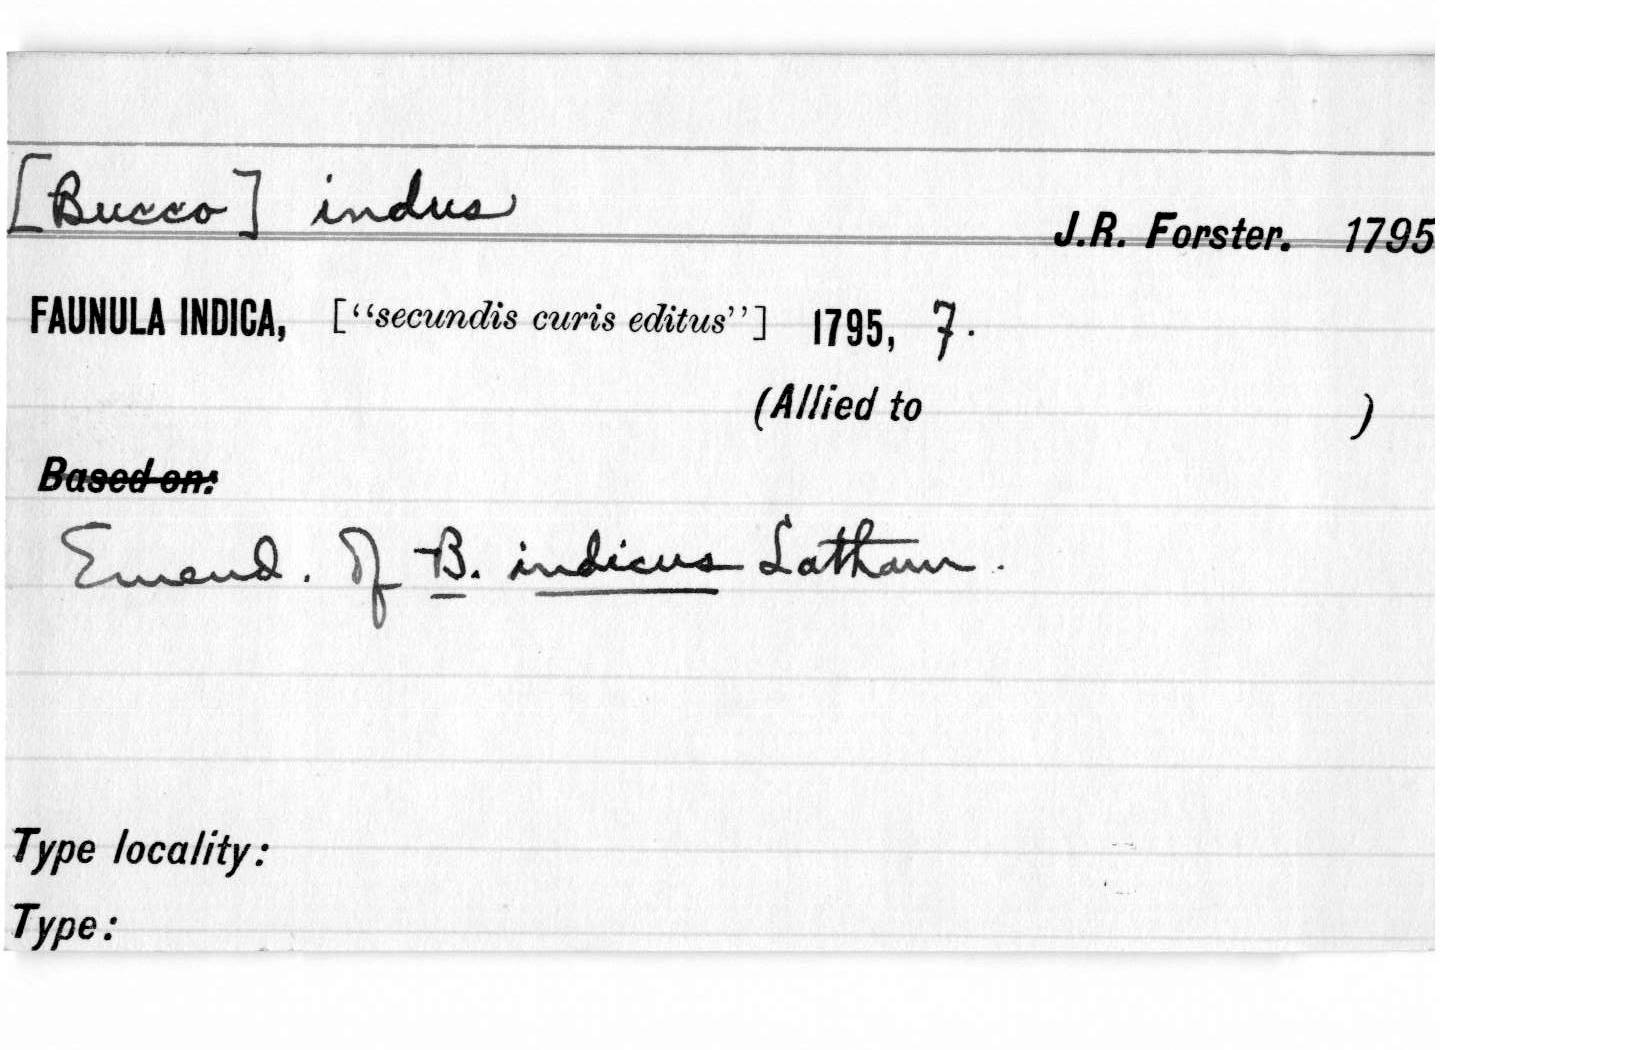 [Bucco] indus
J.R. Forster. 1795
FAUNULA INDICA, ["secundis curis editus"] 1795, 7.
(Allied to )
Based on:
Emend. of B. indicus Latham.
Type locality:
Type: